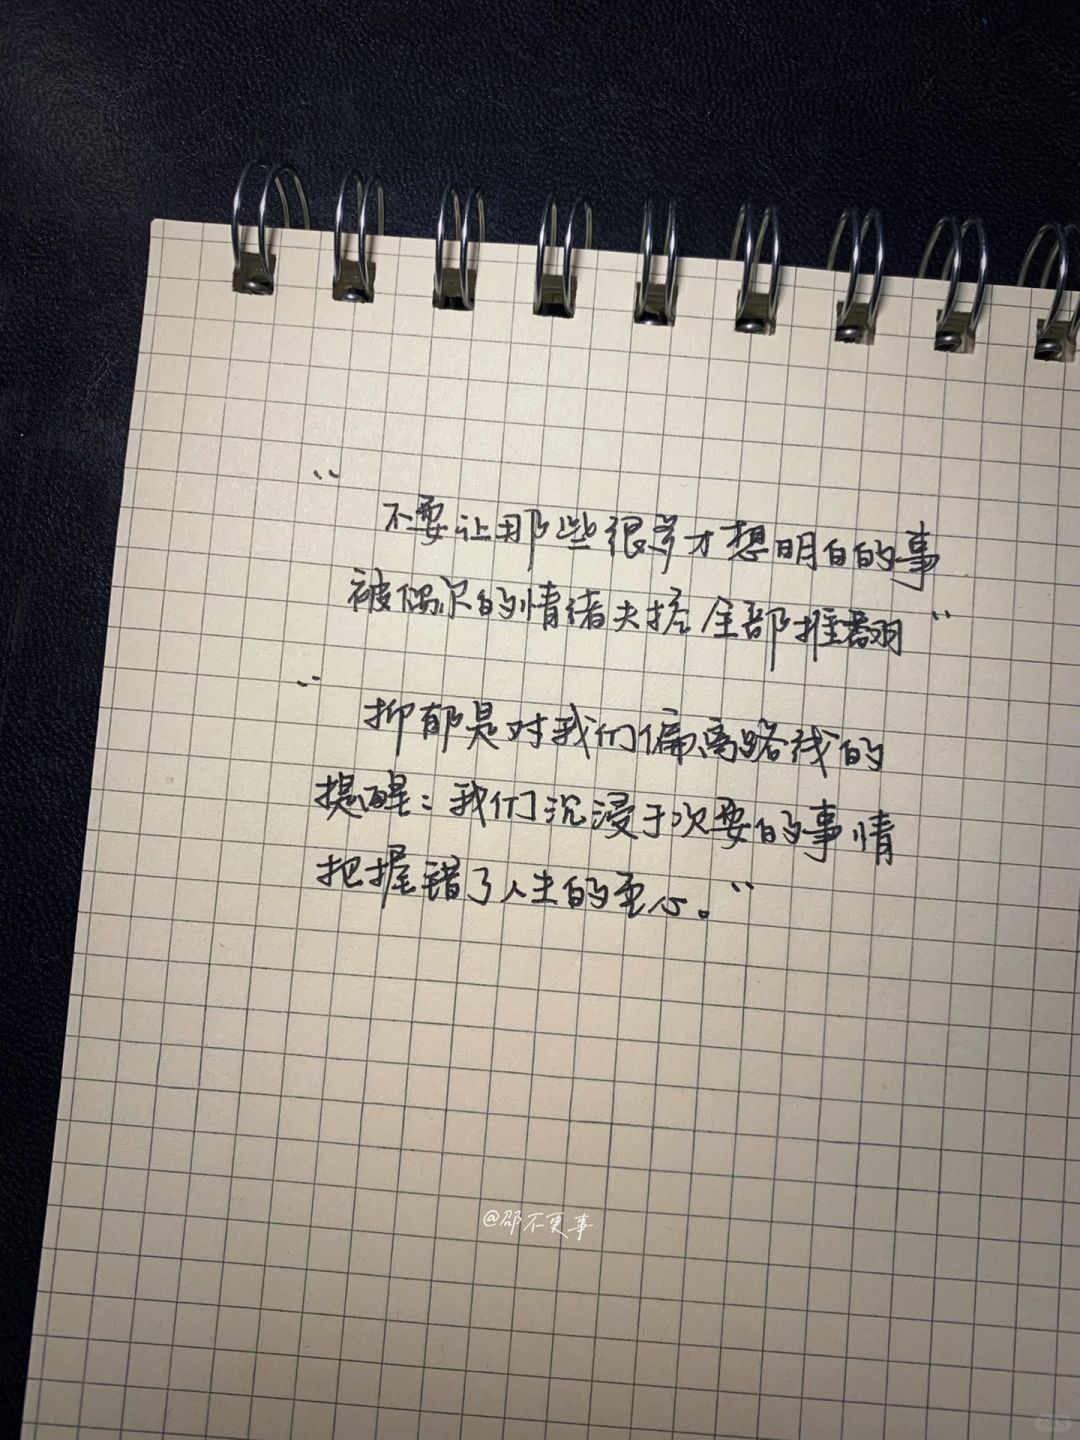 “
不要让那些很多才想明白的事
被偶尔的情绪失控全部推翻”
“
抑郁是对我们偏离路线的
提醒：我们沉浸于次要的事情
把握错了人生的重心。”
@邵不更事